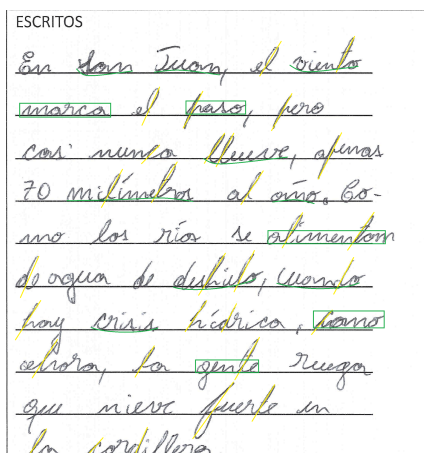 ESCRITOS
En San Juan, el viento
marca el paso, pero
casi nunca llueve, apenas
70 milímetros al año. Co-
mo los ríos se alimentan
de agua de deshielo, cuando
hay crisis hídrica, como
ahora, la gente ruega
que nieve fuerte en
la cordillera.